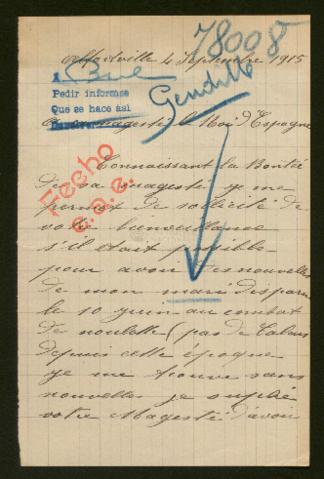 78008
Alfortville 4 Septembre 1915
A
Pedir informes
Que se hace asi
Gendille
A sa magesté le Roi d'Espagne
Fecho
e.a.e.
Connaissant la Bonté
de sa magesté je me
permez de solicité de
votre bienveillance
s'il etait posible
pour avoir des nouvelles
de mon mari disparu
le 10 juin au combat
de noulette (pas de Calais
depuis cette époque
je me trouve sans
nouvelles je suplié
votre Magesté d'avoir